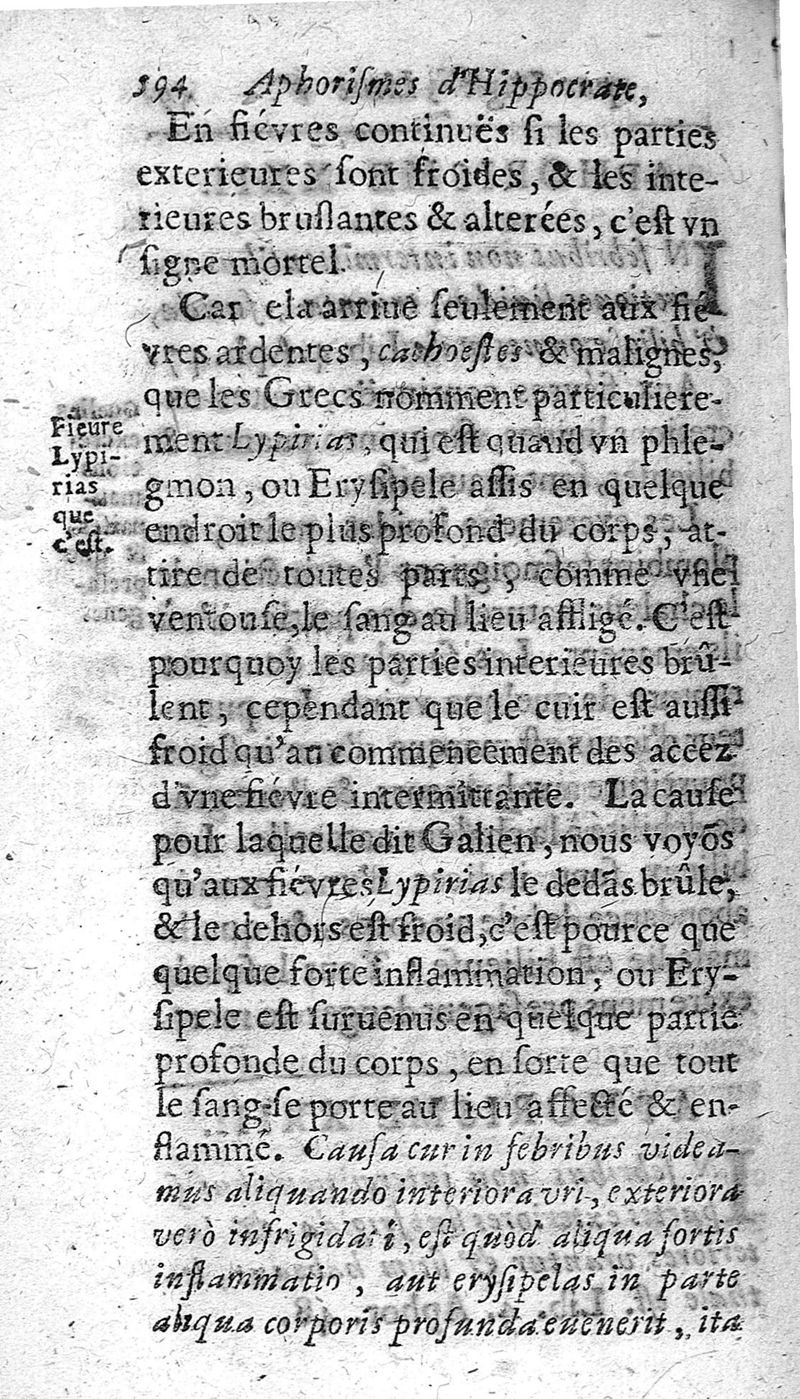 594 Aphoriſmes d'Hippocrate,
En fiévres continuës ſi les parties
exterieures ſont froides, & les inte-
rieures bruſlantes & alterées, c'eſt vn
ſigne mortel.
Car ela arriue ſeulement aux fié
vres ardentes, cachoeſtes & malignes,
que les Grecs nomment particuliere-
ment Lypirias, qui eſt quand vn phle-
gmon, ou Eryſipele aſſis en quelque
endroit le plus profond du corps, at-
tire de toutes parts, comme vne
ventouſe, le ſang au lieu affligé. C'eſt
pourquoy les parties interieures brû-
lent, cependant que le cuir eſt auſſi
froid qu'au commencement des accez
d'vne fiévre intermittante. La cauſe
pour laquelle dit Galien, nous voyõs
qu'aux fiévres Lypirias le dedãs brûle,
& le dehors eſt froid, c'eſt pource que
quelque forte inflammation, ou Ery-
ſipele eſt ſuruenus en quelque partie
profonde du corps, en ſorte que tout
le ſang ſe porte au lieu affecté & en-
flammé. Cauſa cur in febribus videa-
mus aliquando interiora vri, exteriora
verò infrigidari, eſt quòd aliqua fortis
inflammatio, aut eryſipelas in parte
aliqua corporis profunda euenerit, ita
Fieure
Lypi-
rias
que
c'eſt.